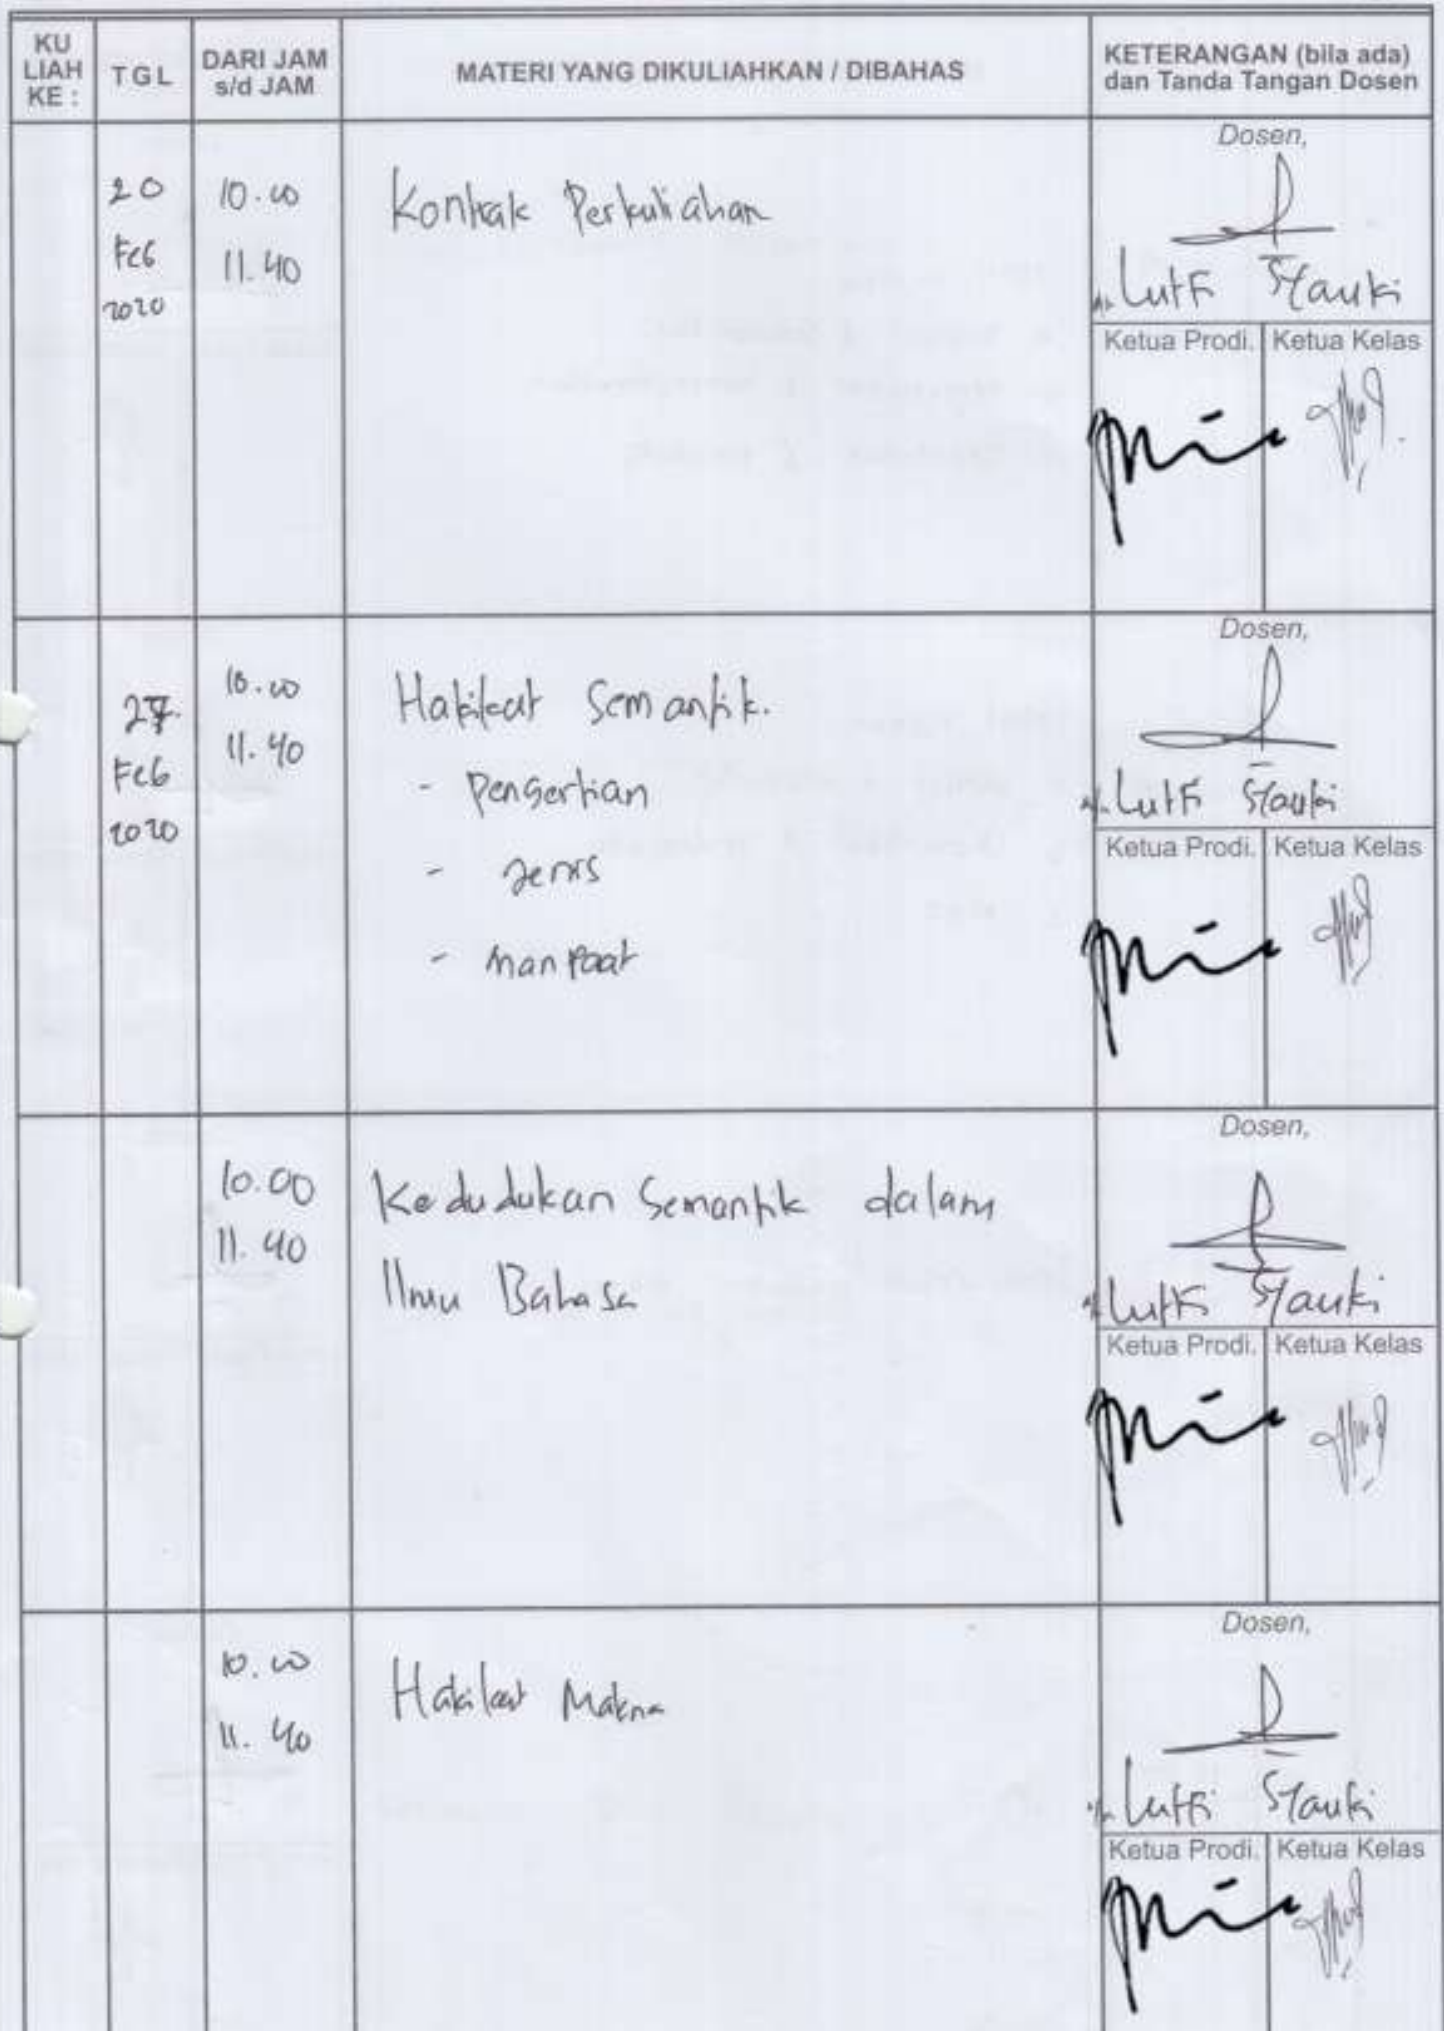 KU LIAH KE :
TGL
DARI JAM s/d JAM
MATERI YANG DIKULIAHKAN / DIBAHAS
KETERANGAN (bila ada) dan Tanda Tangan Dosen
20 Feb 2020
10.00
11.40
Kontrak Perkuliahan
Dosen,
Lutfi Syauki
Ketua Prodi.
Ketua Kelas
27 Feb 2020
10.00
11.40
Hakikat Semantik.
- Pengertian
- Jenis
- manpaat
Dosen,
Lutfi Syauki
Ketua Prodi.
Ketua Kelas
10.00
11.40
Kedudukan Semantik dalam
Ilmu Bahasa
Dosen,
Lutfi Syauki
Ketua Prodi.
Ketua Kelas
10.00
11.40
Hakikat Makna
Dosen,
Lutfi Syauki
Ketua Prodi.
Ketua Kelas